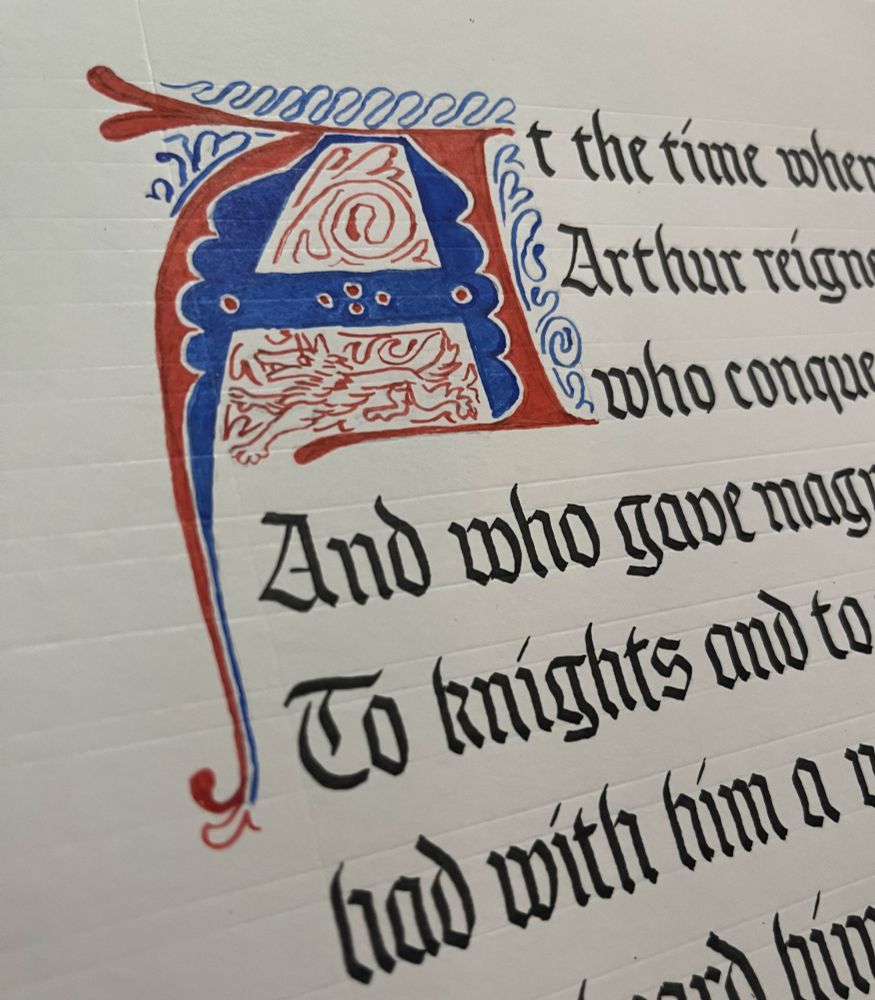 At the time when
Arthur reigne
who conque
And who gave magn
To knights and to
had with him a
him